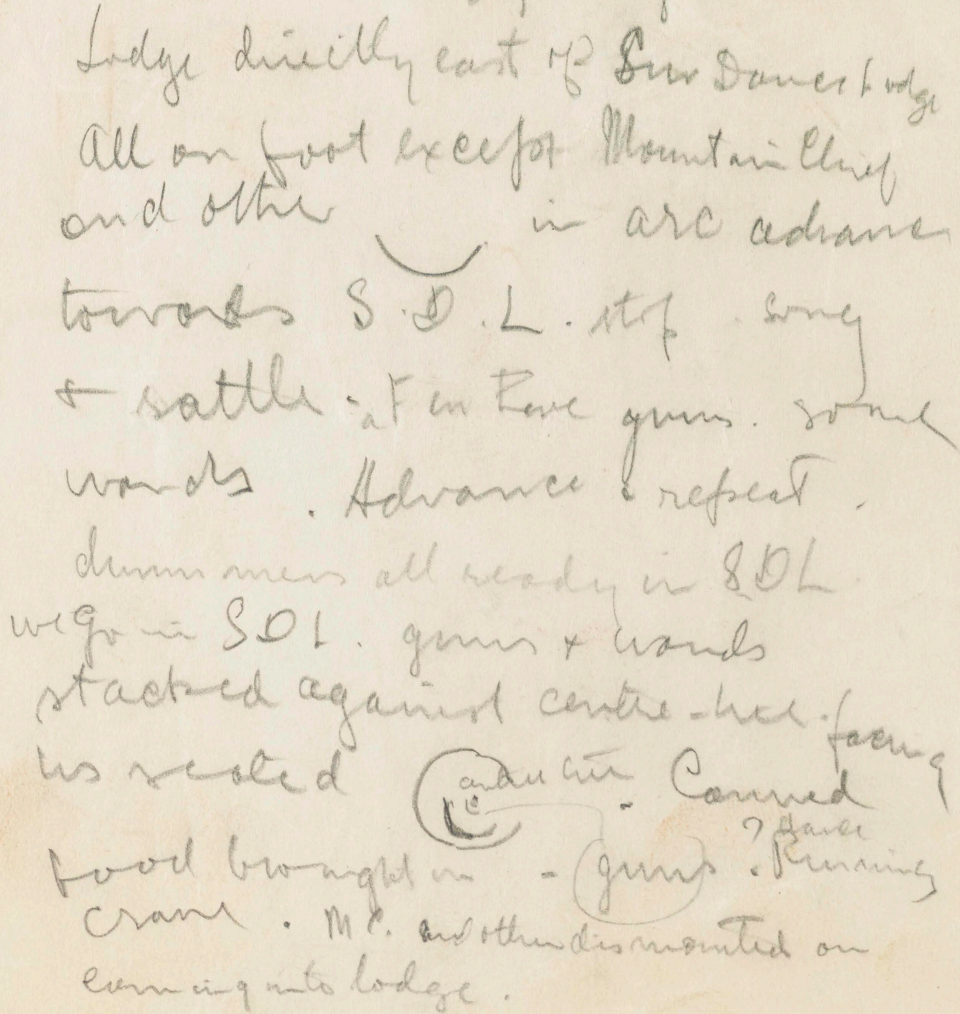 Lodge directly east of Sun Dance Lodge
All on foot except Mountain Chief
and other in arc advance
towards S.D.L. stop. song
& rattle - at en have guns. some
wands. Advance & repeat.
drummers all ready in SDL
we go in SDL. guns & wands
stacked against centre-tree. facing
us seated Canned
? dance
food brought in - guns. Running
crane. M C. and other dismounted on
coming into lodge.